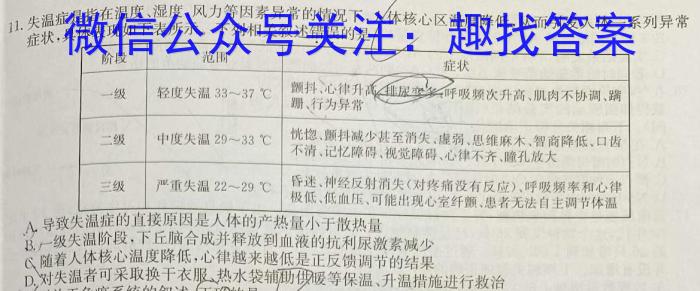 11.失温症是指在温度、湿度、风力等因素异常的情况下,人体核心区温度降低,从而引发人体一系列异常
症状,
微信公众号关注：趣找答案
阶段 范围 症状
一级 轻度失温 33～37 ℃ 颤抖、心律升高、排尿变多、呼吸频次升高、肌肉不协调、蹒
跚、行为异常
二级 中度失温 29～33 ℃ 恍惚、颤抖减少甚至消失、虚弱、思维麻木、智商降低、口齿
不清、记忆障碍、视觉障碍、心律不齐、瞳孔放大
三级 严重失温 22～29 ℃ 昏迷、神经反射消失(对疼痛没有反应)、呼吸频率和心律
极低、低血压、可能出现心室纤颤、患者无法自主调节体温
A.导致失温症的直接原因是人体的产热量小于散热量
B.一级失温阶段,下丘脑合成并释放到血液的抗利尿激素减少
C.随着人体核心温度降低,心律越来越低是正反馈调节的结果
D.对失温者可采取换干衣服、热水袋辅助供暖等保温、升温措施进行救治